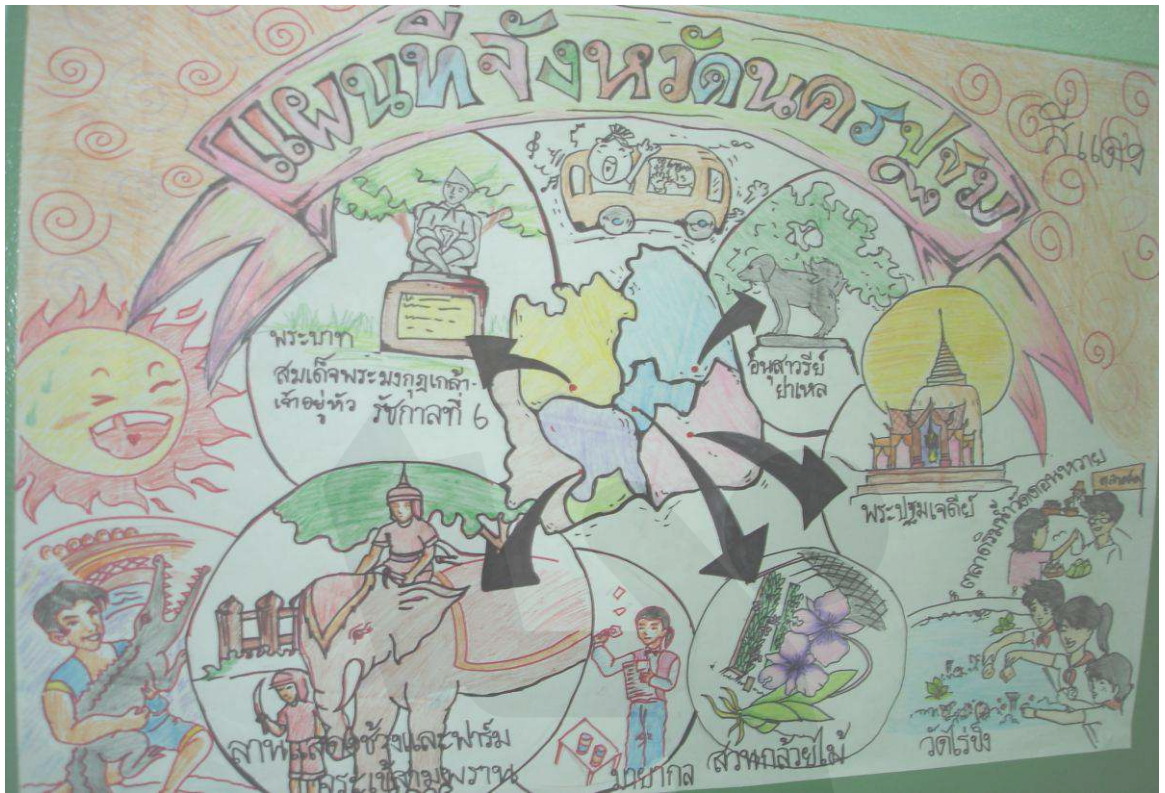 แผนที่จังหวัดนครปฐม
สี่แคว
พระบาท
สมเด็จพระมงกุฎเกล้า-
เจ้าอยู่หัว รัชกาลที่ 6
อนุสาวรีย์
ย่าเหล
พระปฐมเจดีย์
ตลาดริมน้ำวัดดอนหวาย
ลานแสดงช้างและฟาร์ม
จระเข้สามพราน
มายากล
สวนกล้วยไม้
วัดไร่ขิง